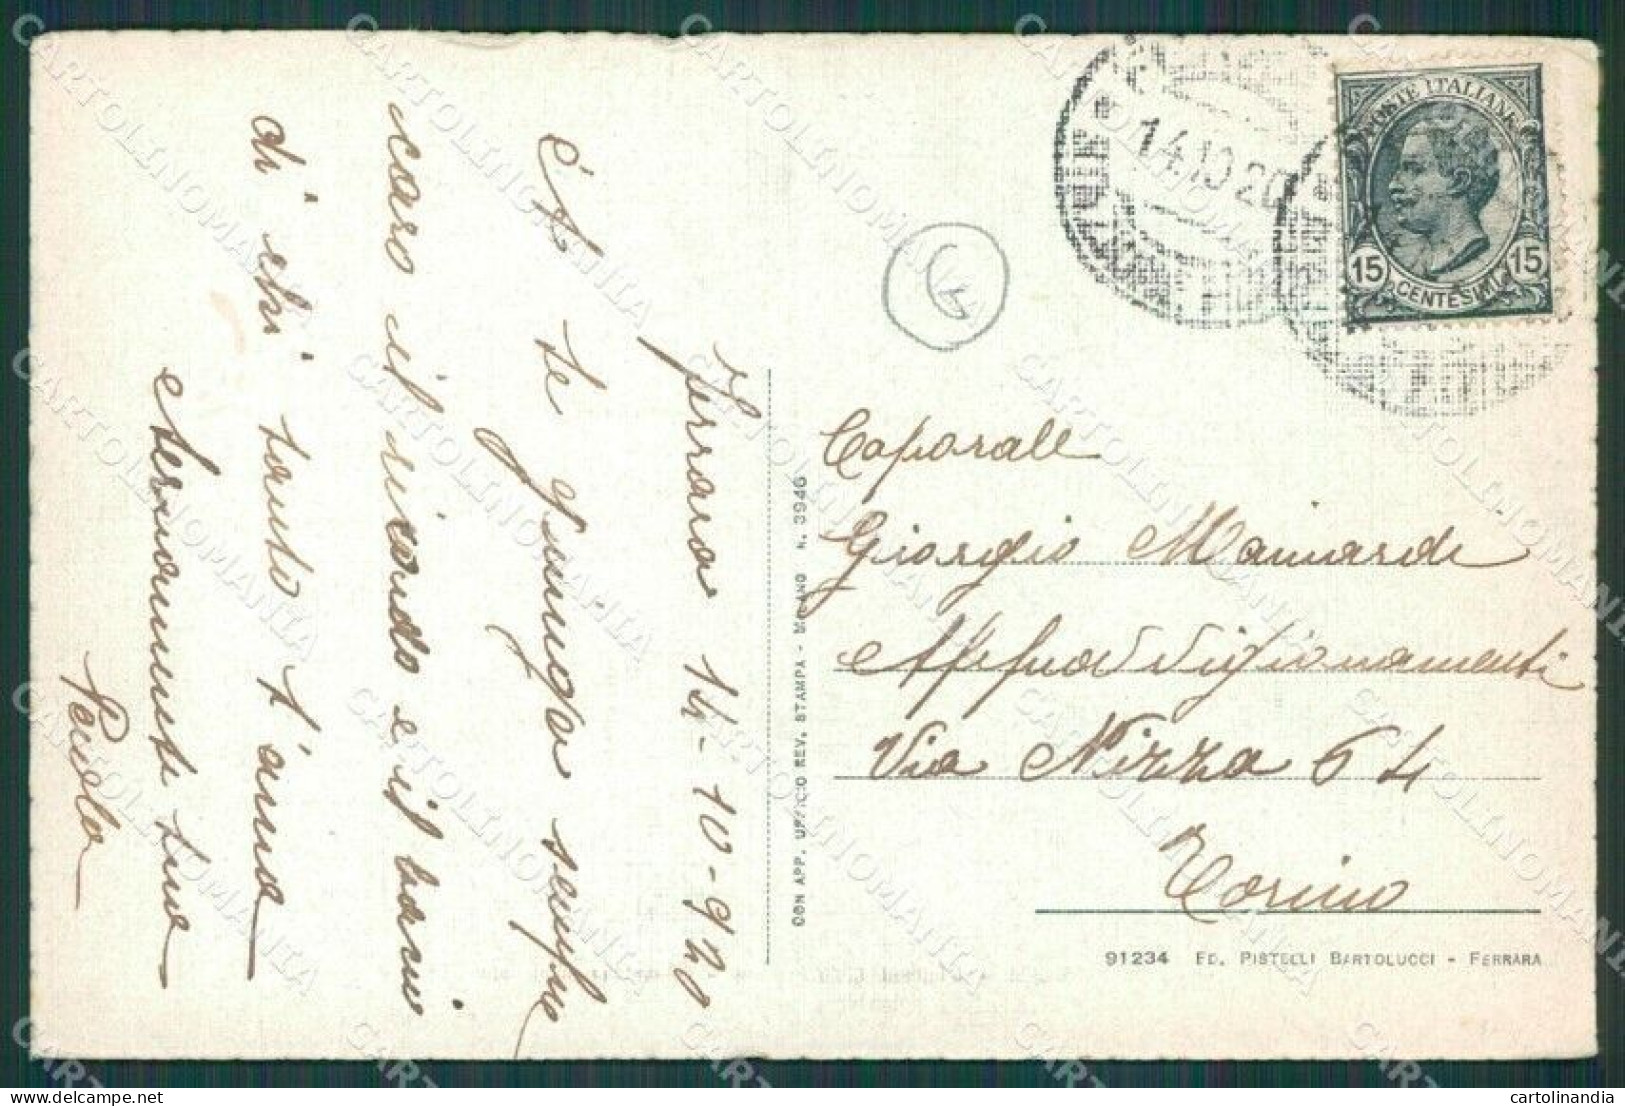 Ferrara 14-10-920
A te giunga sempre
caro il ricordo e il bacio
di chi tanto t'ama
eternamente tua
Paola
14.10.20
POSTE ITALIANE
15 15
CENTESIMI
Caporale
Giorgio Mainardi
Via Nizza 64
Torino
CON APP. UFFICIO REV. STAMPA - MILANO N. 3946
91234 ED. PISTELLI BARTOLUCCI - FERRARA
CARTOLINOMANIA
cartolinandia